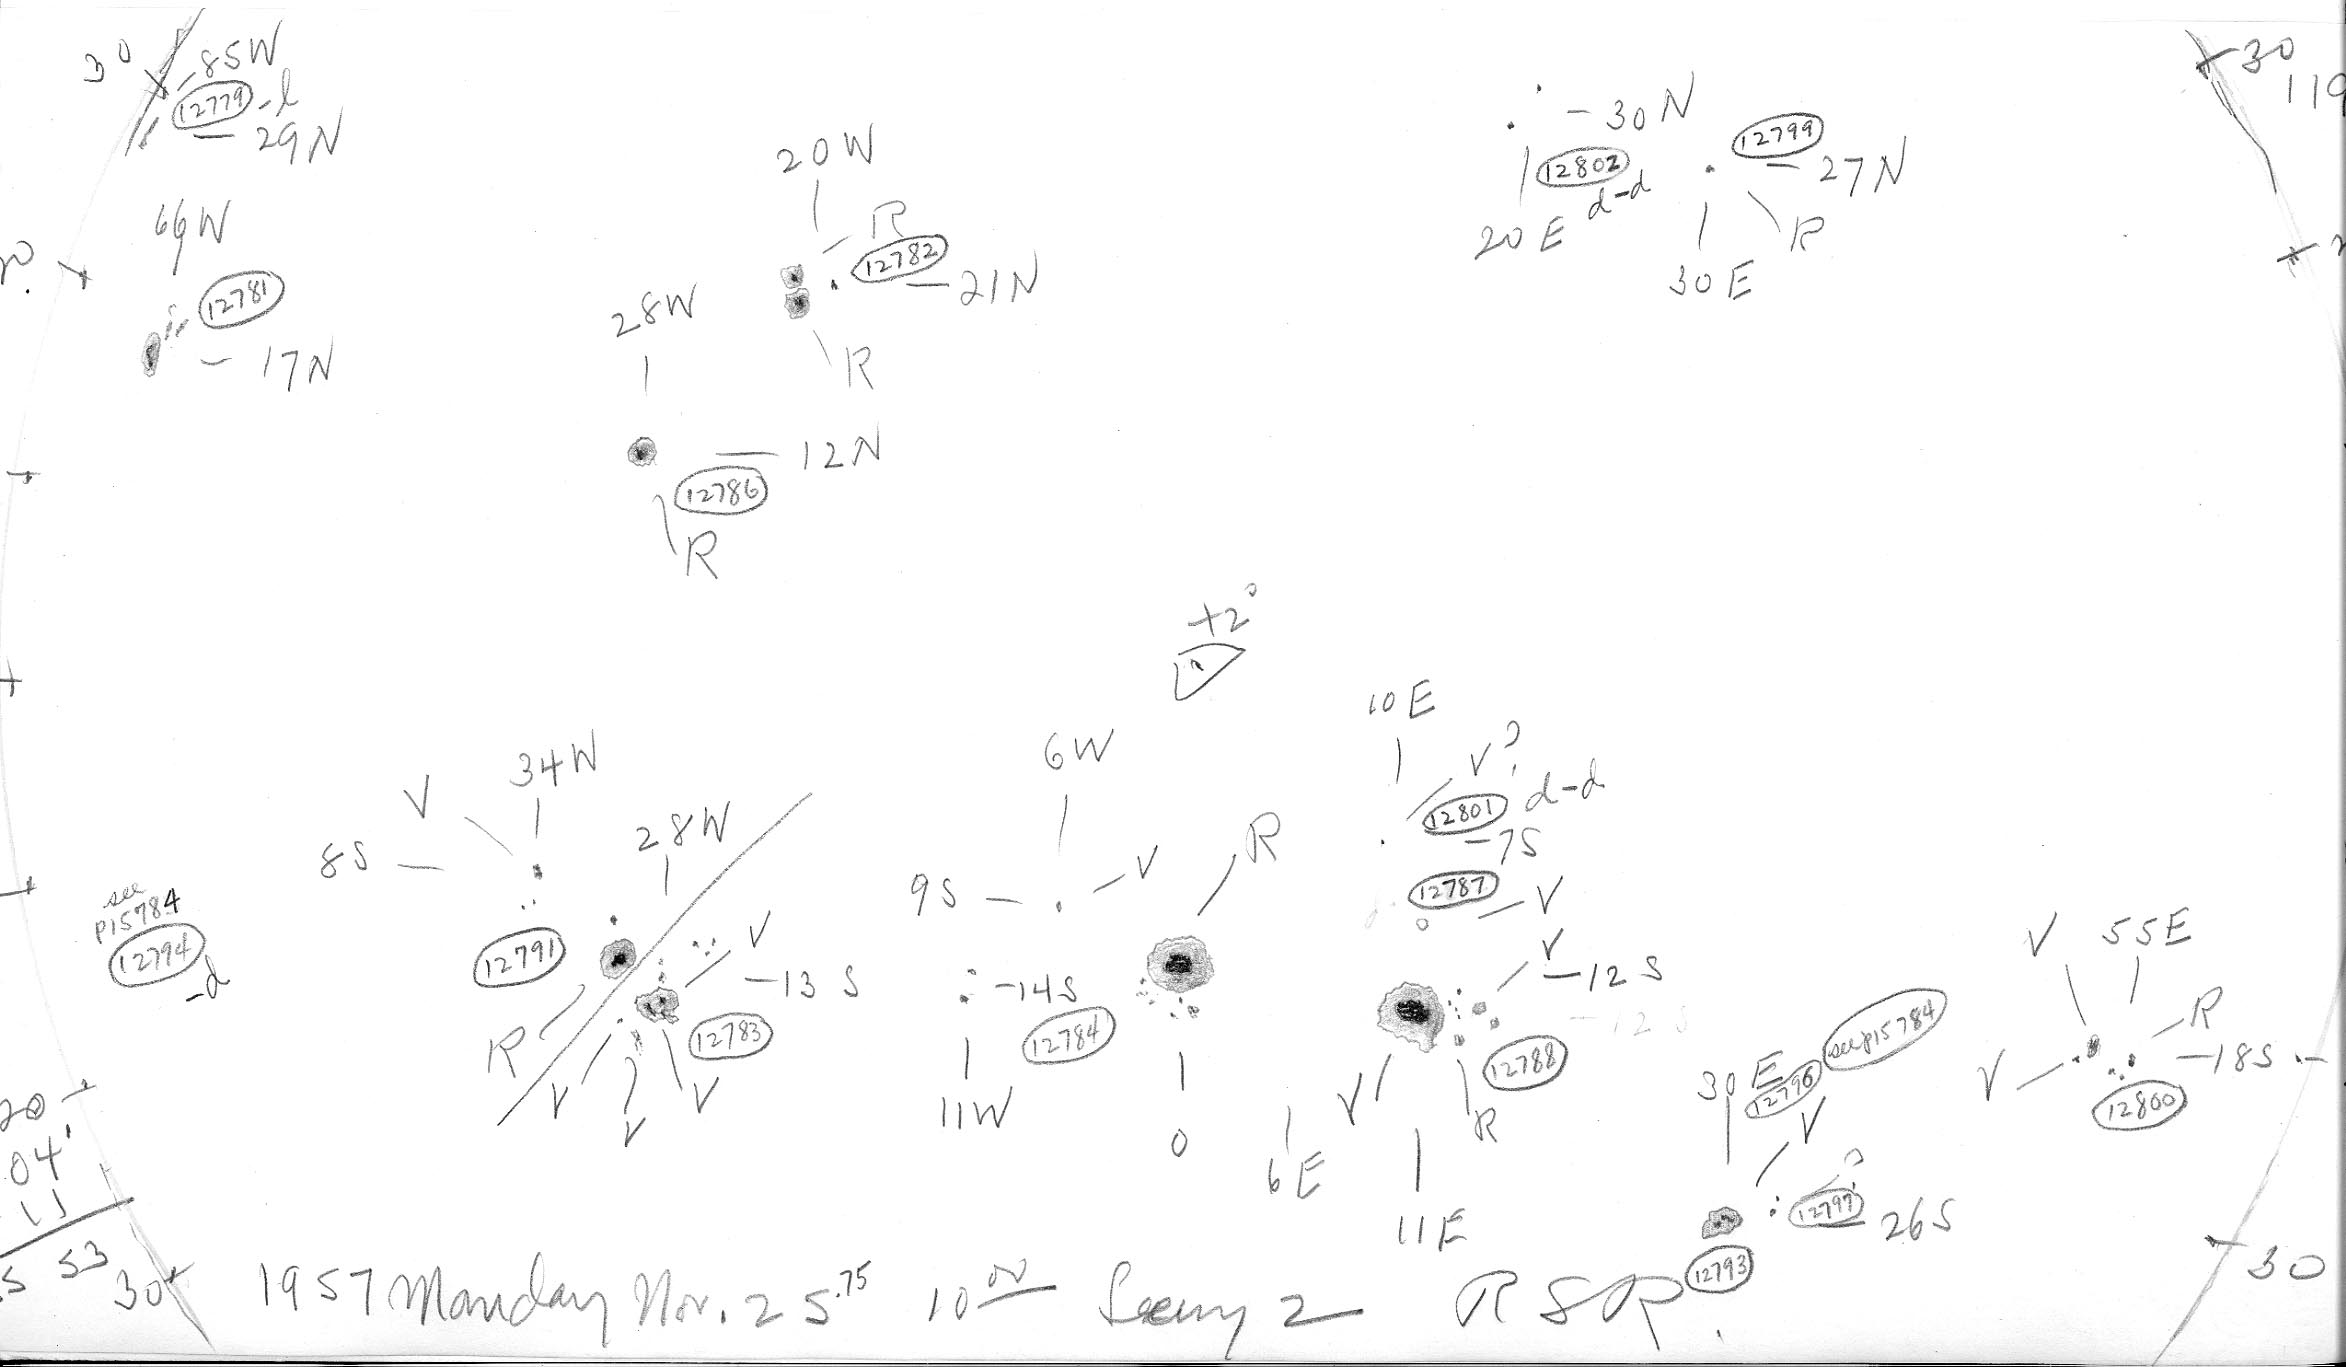 30
85W
12779 -l
- 29N
66W
12781
- 17N
20W
R
12782
- 21N
R
28W
- 12N
12786
R
- 30N
12802
d-d
20 E
12799
- 27N
R
30 E
30
119
+2°
V
34W
8S -
12791
R
28W
V
-13 S
12783
V
V
V
see
P15784
12794
-d
6W
9S -
V
-14S
12784
11W
R
0
10 E
V?
12801 d-d
-7S
12787
V
V
-12 S
-12 S
12788
V
R
6E
11E
30 E
12796
see p15784
V
?
12797
26S
12793
V
55E
R
V
-18S
12800
20
04'
15
53
30
30
1957 Monday Nov. 25.75 10 00 Seeing 2 R S R.